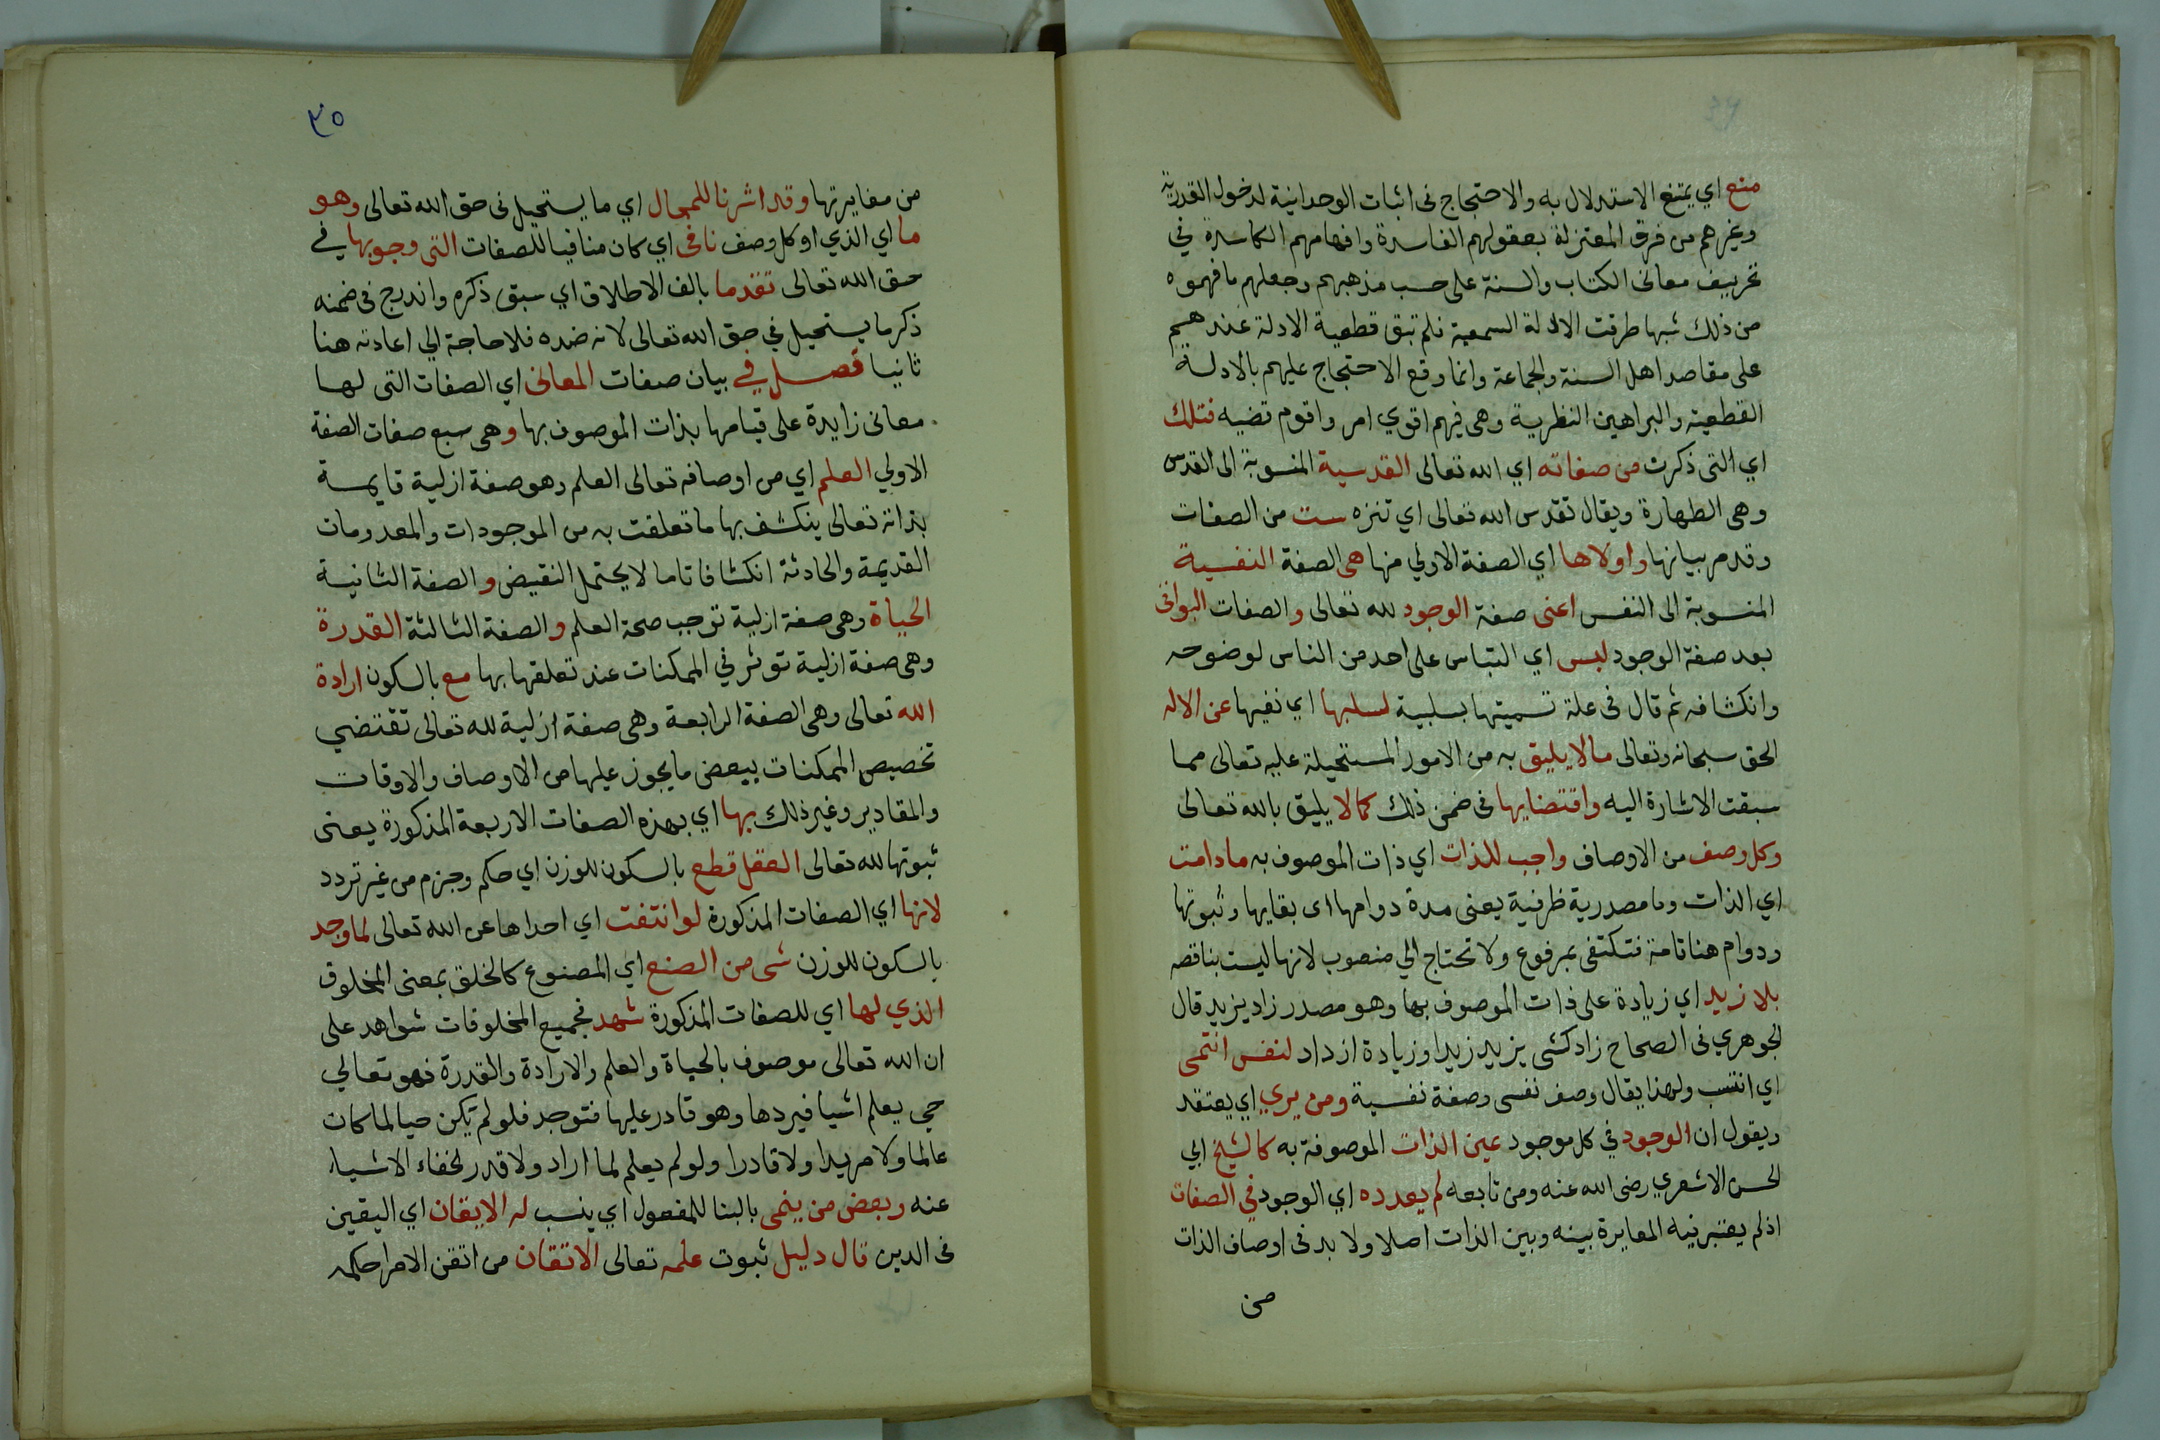 منع اي يمتنع الاستدلال به والاحتجاج فى اثبات الوحدانية لدخول القدرية
وغيرهم من فرق المعتزلة بعقولهم الفاسدة وافهامهم الكاسدة في
تحريف معانى الكتاب والسنة على حسب مذهبهم وجعلهم ما فهموه
من ذلك شبها طرقت الادلة السمعية فلم تبق قطعية الادلة عندهم
على مقاصد اهل السنة والجماعة وانما وقع الاحتجاج عليهم بالادلة
القطعية والبراهين النظرية وهى فيهم اقوي امر واقوم قضيه فتلك
اي التى ذكرت من صفاته اي الله تعالى القدسية المنسوبة الى القدس
وهى الطهارة ويقال تقدس الله تعالى اي تنزه ست من الصفات
وقد مر بيانها واولاها اي الصفة الاولي منها هى الصفة النفسية
المنسوبة الى النفس اعنى صفة الوجود لله تعالى والصفات البواقى
بعد صفة الوجود لبس اي التباس على احد من الناس لوضوحه
وانكشافه ثم قال فى علة تسميتها بسلبية لسلبها اي نفيها عن الاله
الحق سبحانه وتعالى ما لا يليق به من الامور المستحيلة عليه تعالى مما
سبقت الاشارة اليه واقتضايها فى ضمن ذلك كمالا يليق بالله تعالى
وكل وصف من الاوصاف واجب للذات اي ذات الموصوف به ما دامت
اي الذات وما مصدرية ظرفية يعنى مدة دوامها اى بقايها وثبوتها
ودوام هنا تامة فتكتفى بمرفوع ولا تحتاج الي منصوب لانها ليست بناقصه
بلا زيد اي زيادة على ذات الموصوف بها وهو مصدر زاد يزيد قال
الجوهري فى الصحاح زاد كشى يزيد زيدا وزيادة ازداد لنفس انتمى
اي انتسب ولهذا يقال وصف نفسى وصفة نفسية ومن يري اي يعتقد
ويقول ان الوجود في كل موجود عين الذات الموصوفة به كالشيخ ابي
الحسن الاشعري رضى الله عنه ومن تابعه لم يعدده اي الوجود في الصفات
اذ لم يعتبر فيه المغايرة بينه وبين الذات اصلا ولا بد فى اوصاف الذات
من
٣٥
من مغايرتها وقد اشرنا للمحال اي ما يستحيل فى حق الله تعالى وهو
ما اي الذي او كل وصف نافى اي كان منافيا للصفات التى وجوبها في
حق الله تعالى تقدما بالف الاطلاق اي سبق ذكره واندرج فى ضمنه
ذكر ما يستحيل في حق الله تعالى لانه ضده فلا حاجة الي اعادته هنا
ثانيا فصل في بيان صفات المعانى اي الصفات التى لها
معانى زايدة على قيامها بذات الموصوف بها وهى سبع صفات الصفة
الاولي العلم اي من اوصافه تعالى العلم وهو صفة ازلية قايمة
بذاته تعالى ينكشف بها ما تعلقت به من الموجودات والمعدومات
القديمة والحادثة انكشافا تاما لا يحتمل النقيض والصفة الثانية
الحياة وهى صفة ازلية توجب صحة العلم والصفة الثالثة القدرة
وهى صفة ازلية توثر في الممكنات عند تعلقها بها مع بالسكون ارادة
الله تعالى وهى الصفة الرابعة وهى صفة ازلية لله تعالى تقتضي
تخصيص الممكنات ببعض ما يجوز عليها من الاوصاف والاوقات
والمقادير وغير ذلك بها اي بهذه الصفات الاربعة المذكورة يعنى
ثبوتها لله تعالى العقل قطع بالسكون للوزن اي حكم وجزم من غير تردد
لانها اي الصفات المذكورة لو انتفت اي احداها عن الله تعالى لما وجد
بالسكون للوزن شى من الصنع اي المصنوع كالخلق بمعنى المخلوق
الذي لها اي للصفات المذكورة شهد فجميع المخلوقات شواهد على
ان الله تعالى موصوف بالحياة والعلم والارادة والقدرة فهو تعالي
حي يعلم اشيا فيردها وهو قادر عليها فتوجد فلو لم يكن حيا لما كان
عالما ولا مريدا ولا قادرا ولو لم يعلم لما اراد ولا قدر لخفاء الاشياء
عنه وبعض من ينمى بالبنا للمفعول اي ينسب له الايقان اي اليقين
فى الدين قال دليل ثبوت علمه تعالى الاتقان من اتقن الامر احكمه